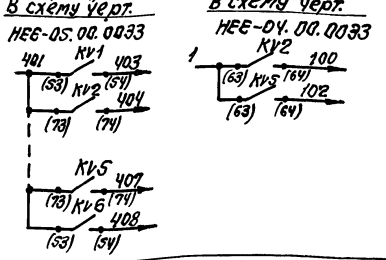 В схему черт.
НЕЕ-05.00.00ЭЗ
401
KV1
403
(53)
(54)
KV2
404
(73)
(74)
KV5
407
(73)
(74)
KV6
408
(53)
(54)
В схему черт.
НЕЕ-04.00.00ЭЗ
1
KV2
100
(63)
(64)
KV5
102
(63)
(64)